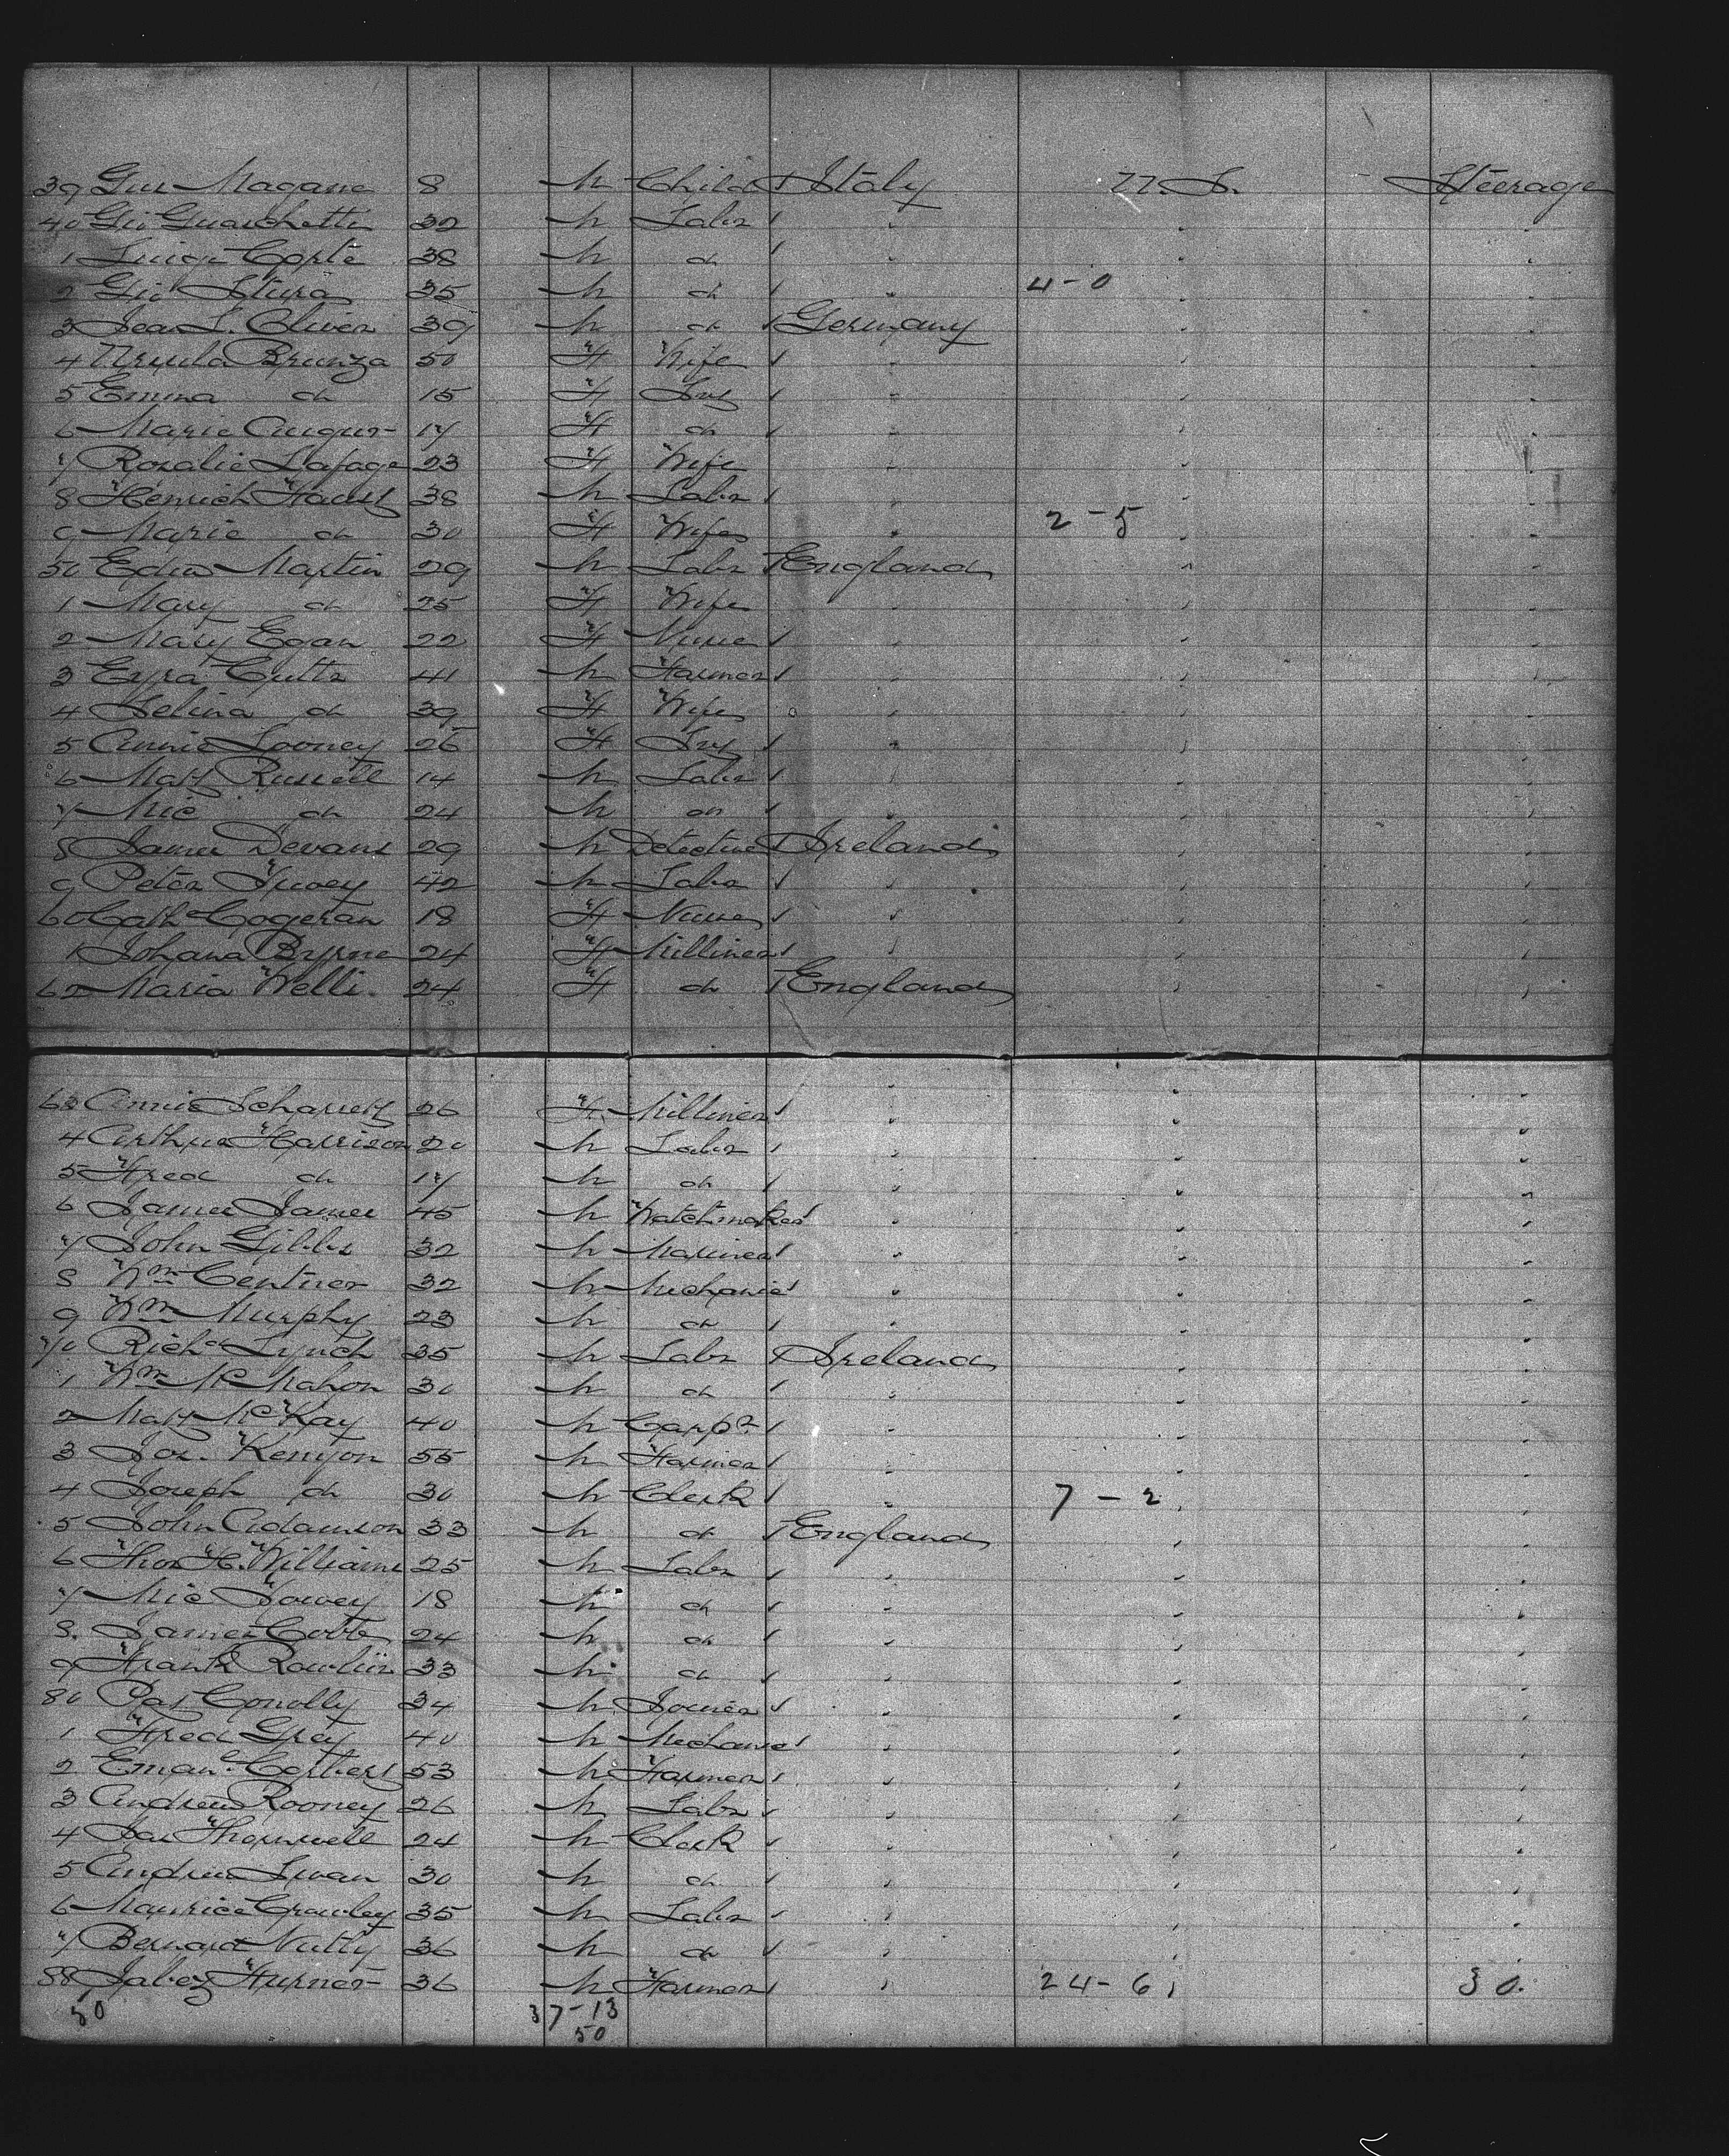 39 Gius Magane 8 M Child Italy U S. Steerage
40 Gio Guaschetti 32 M Labr " " "
1 Luigi Coste 38 M do " " "
2 Gio Stura 35 M do " 4-0 " "
3 Jean L. Oliver 39 M do Germany " "
4 Ursula Brunza 50 F Wife " " "
5 Emma do 15 F Svt " " "
6 Marie 17 F do " " "
7 Rosalie Lafage 23 F Wife " " "
8 Henrich 38 M Labr " " "
9 Marie do 30 F Wife " 2-5 " "
50 Edwd Martin 29 M Labr England " "
1 Mary do 25 F Wife " " "
2 Mary Egan 22 F Nurse " " "
3 Ezra Cutts 41 M Farmer " " "
4 Selina do 39 F Wife " " "
5 Annie Looney 26 F Svt " " "
6 Matt Russell 14 M Labr " " "
7 Mic do 24 M do " " "
8 James Devans 29 M Detective Ireland " "
9 Peter 42 M Labr " " "
60 Cath Cogeran 18 F Nurse " " "
1 Johana Byrne 24 F Milliner " " "
62 Maria Welli 24 F do England " "
63 Annie 26 F Milliner " " "
4 Arthur Harrison 20 M Labr " " "
5 Fred do 17 M do " " "
6 James James 45 M Watchmaker " " "
7 John Gibbs 32 M Mariner " " "
8 Wm Centner 32 M Mechanic " " "
9 Wm Murphy 23 M do " " "
70 Richd Lynch 35 M Labr Ireland " "
1 Wm McMahon 30 M do " " "
2 Matt McKay 40 M Carpr " " "
3 Jos. Kenyon 55 M Farmer " " "
4 Joseph do 30 M Clerk " 7-2 " "
5 John Adamson 33 M do England " "
6 Thos H. Williams 25 M Labr " " "
7 Mic 18 M do " " "
8. James Cobb 24 M do " " "
9 Frank Rawlin 33 M do " " "
80 Pat Conolly 34 M Joiner " " "
1 Fred Gray 40 M Mechanic " " "
2 Emanl 53 M Farmer " " "
3 Andrew Rooney 26 M Labr " " "
4 Jas Thornwell 24 M Clerk " " "
5 Andrew Swan 30 M do " " "
6 Maurice Crowley 35 M Labr " " "
7 Bernard Nutty 36 M do " " "
88 Jabez Turner 36 M Farmer " 24-6 " 30.
50 37-13
50